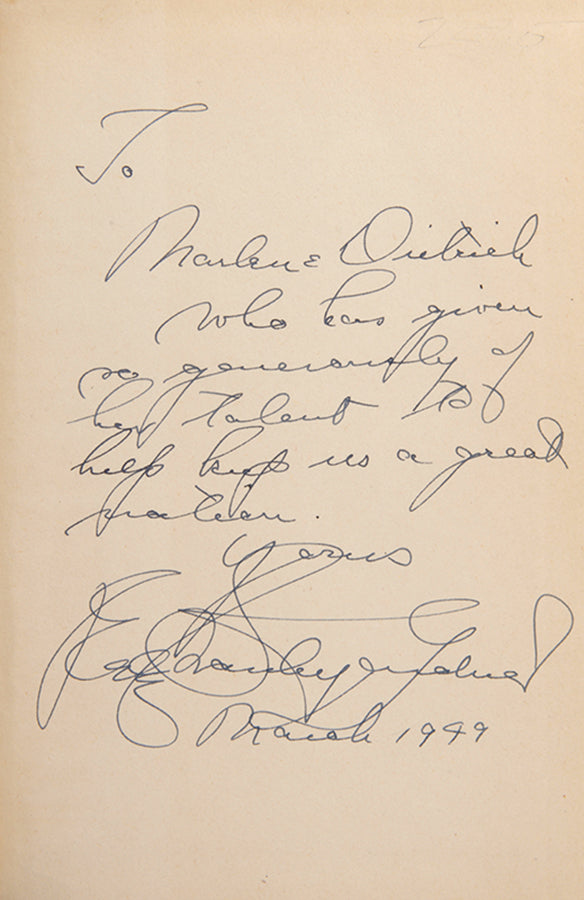 To
Marlene Dietrich
who has given
so generously of
her talent to
help keep us a great
nation.
Yours
Earl Stanley Gardner
March 1949